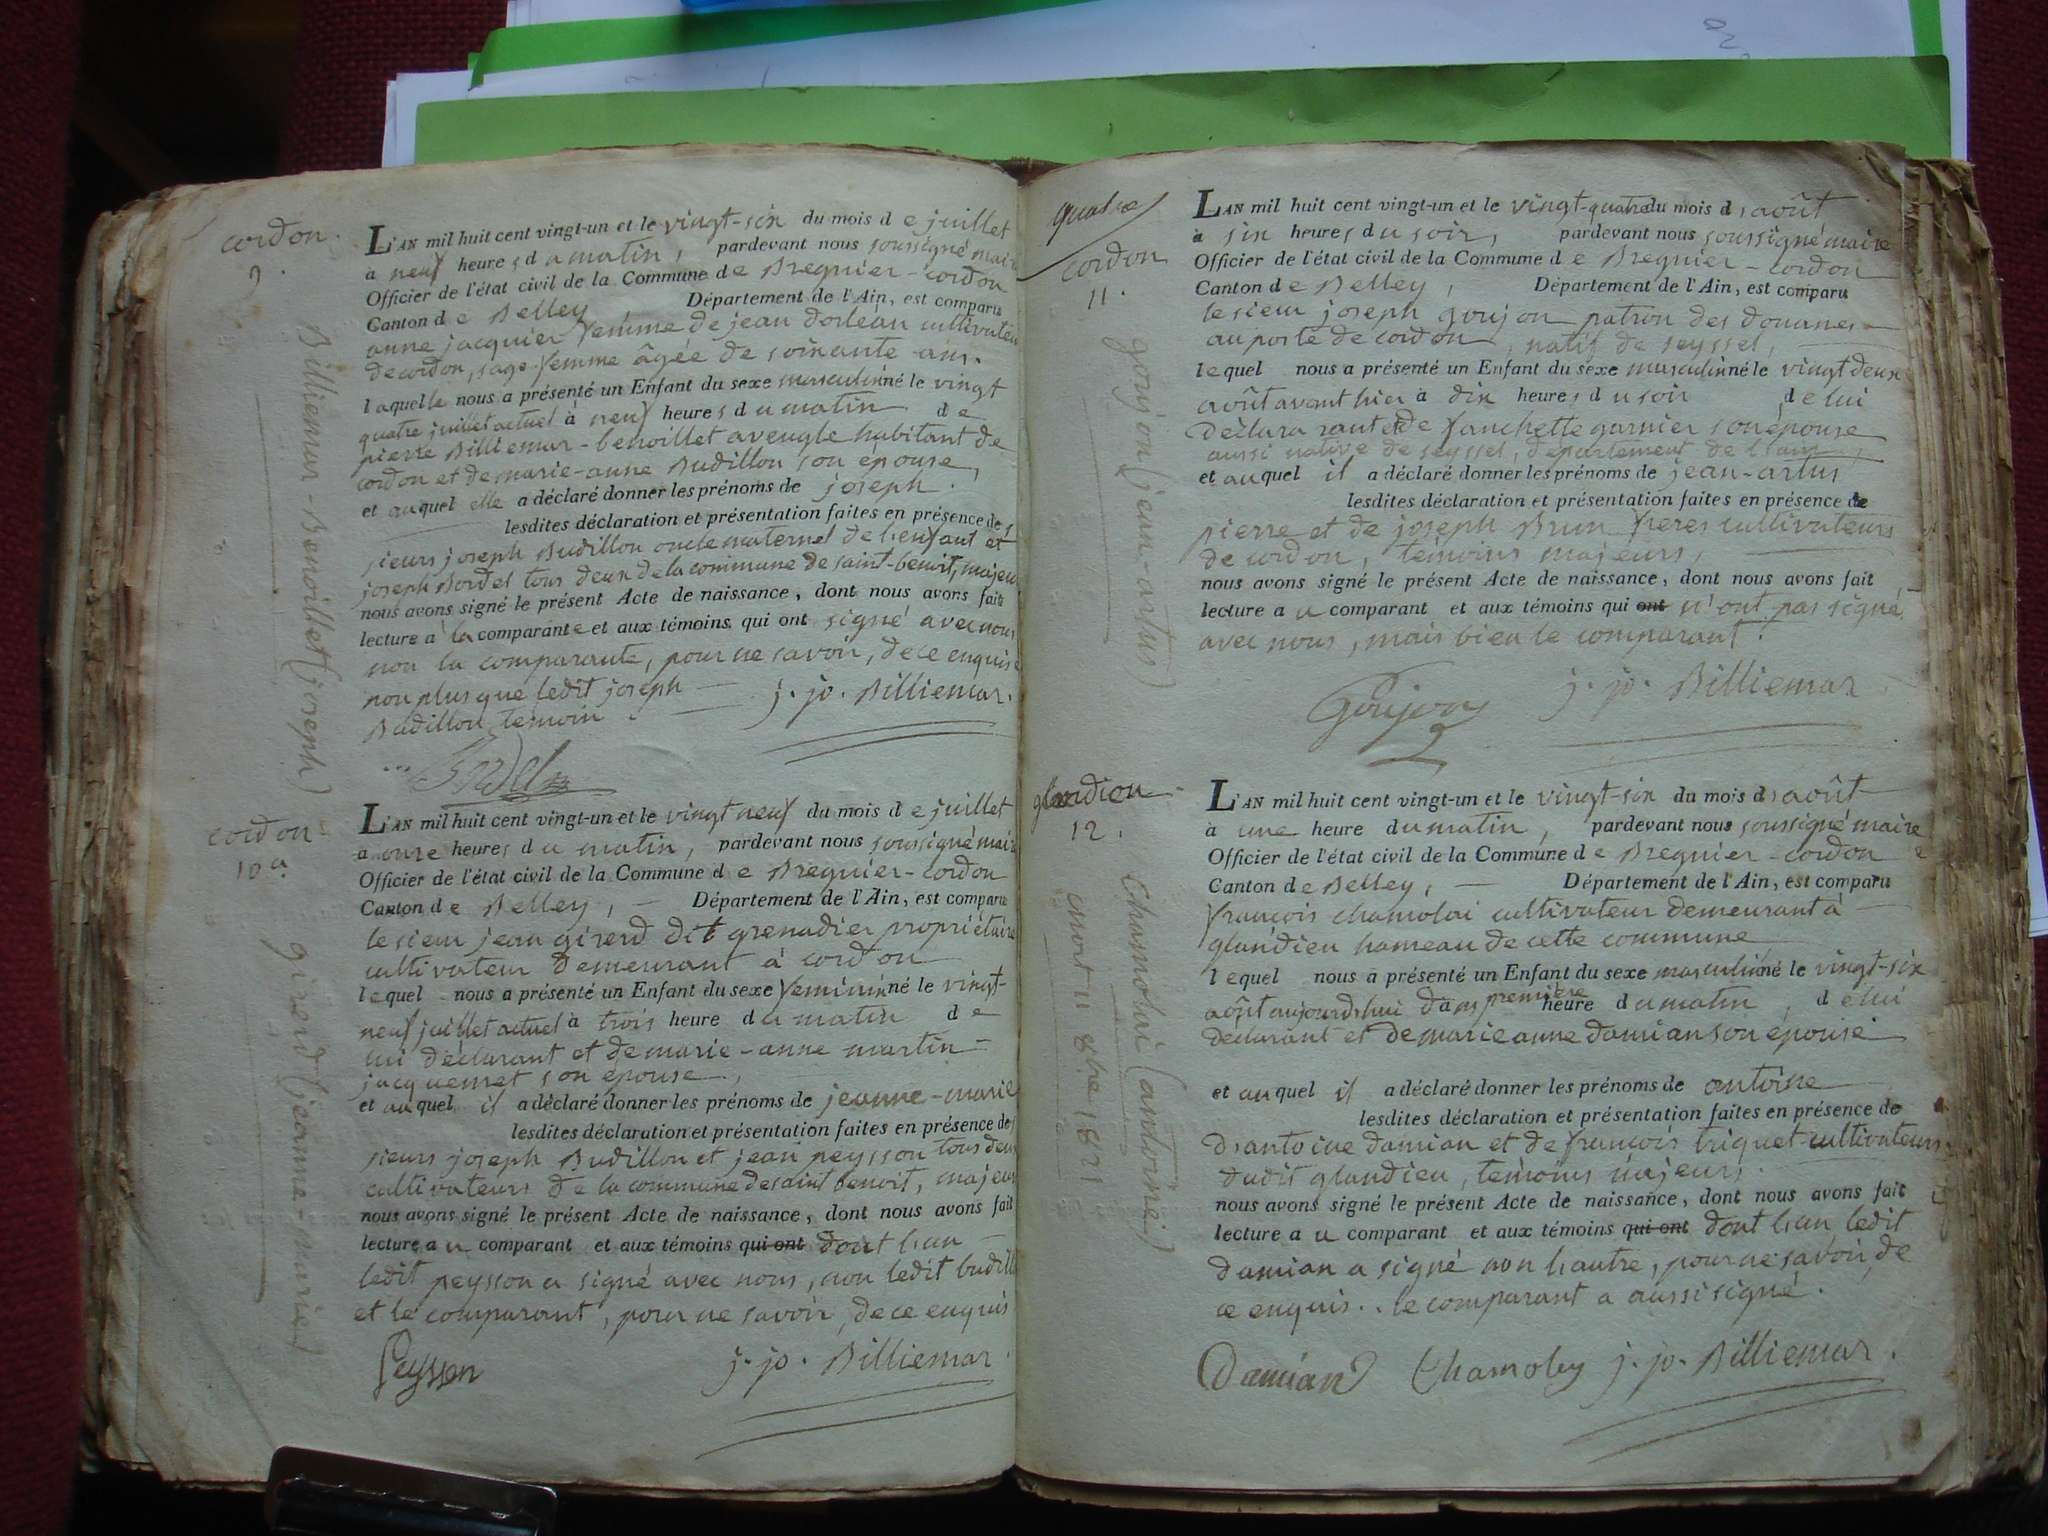 cordon.
9.
Billiemar-Benoillet (joseph)
L'AN mil huit cent vingt-un et le vingt-six du mois de juillet
à neuf heures du matin, pardevant nous soussigné mair
Officier de l'état civil de la Commune de Bregnier-cordon
Canton de Belley Département de l'Ain, est comparu
anne jacquier femme de jean dorléan cultivateu
de cordon, sage femme âgée de soixante ans.
laquelle nous a présenté un Enfant du sexe masculin né le vingt
quatre juillet actuel à neuf heures du matin de
pierre Billiemar-benoillet aveugle habitant de
cordon et de marie-anne Budillon son épouse,
et auquel elle a déclaré donner les prénoms de joseph.
lesdites déclaration et présentation faites en présence des
sieurs joseph Budillon oncle maternel de l'enfant et
joseph Bordel tous deux de la commune de saint-benoit, majeu
nous avons signé le présent Acte de naissance, dont nous avons fait
lecture à la comparante et aux témoins qui ont signé avec nous
non la comparante, pour ne savoir, de ce enquise
non plus que ledit joseph
Budillon témoin.
j. jo. Billiemar.
Bordel
cordon
10a.
girerd (jeanne-marie)
L'AN mil huit cent vingt-un et le vingt neuf du mois de juillet
à onze heures du matin, pardevant nous soussigné mair
Officier de l'état civil de la Commune de Bregnier-cordon
Canton de Belley, Département de l'Ain, est comparu
le sieur jean girerd dit grenadier propriétaire
cultivateur demeurant à cordon
lequel nous a présenté un Enfant du sexe feminin né le vingt-
neuf juillet actuel à trois heure du matin de
lui déclarant et de marie-anne martin-
jacquemet son épouse.,
et auquel il a déclaré donner les prénoms de jeanne-marie
lesdites déclaration et présentation faites en présence des
sieurs joseph Budillon et jean peysson tous deux
cultivateurs de la commune de saint benoit, majeur
nous avons signé le présent Acte de naissance, dont nous avons fait
lecture au comparant et aux témoins qui ont dont l'un
ledit peysson a signé avec nous, non ledit budill
et le comparant, pour ne savoir, de ce enquis
Peysson j. jo. Billiemar.
quatre
cordon
11.
goujon (jean-artus)
L'AN mil huit cent vingt-un et le vingt-quatre du mois d'août
à six heures du soir, pardevant nous soussigné maire
Officier de l'état civil de la Commune de Bregnier-cordon
Canton de Belley, Département de l'Ain, est comparu
le sieur joseph goujon patron des douanes
au poste de cordon, natif de seyssel,
lequel nous a présenté un Enfant du sexe masculin né le vingt deux
août avant hier à dix heures du soir de lui
déclarant et de fanchette garnier son épouse
aussi native de seyssel, département de l'ain,
et auquel il a déclaré donner les prénoms de jean-artus
lesdites déclaration et présentation faites en présence de
pierre et de joseph Brun frères cultivateurs
de cordon, témoins majeurs,
nous avons signé le présent Acte de naissance, dont nous avons fait
lecture au comparant et aux témoins qui ont n'ont pas signé
avec nous, mais bien le comparant.
Goujon j. jo. Billiemar
glandieu
12.
Chamolai (antoine.)
mort 11 8bre 1821
L'AN mil huit cent vingt-un et le vingt-six du mois d'août
à une heure du matin, pardevant nous soussigné maire
Officier de l'état civil de la Commune de Bregnier-cordon
Canton de Belley, Département de l'Ain, est comparu
françois chamolai cultivateur demeurant à
glandieu hameau de cette commune
lequel nous a présenté un Enfant du sexe masculin né le vingt-six
août aujourd'hui dans première heure du matin de lui
déclarant et de marie anne damian son épouse
et auquel il a déclaré donner les prénoms de antoine
lesdites déclaration et présentation faites en présence de
d'antoine damian et de françois triquet cultivateurs
dudit glandieu, témoins majeurs.
nous avons signé le présent Acte de naissance, dont nous avons fait
lecture au comparant et aux témoins qui ont dont l'un ledit
damian a signé non l'autre, pour ne savoir, de
ce enquis.. le comparant a aussi signé.
Damian Chamoley j. jo. Billiemar.